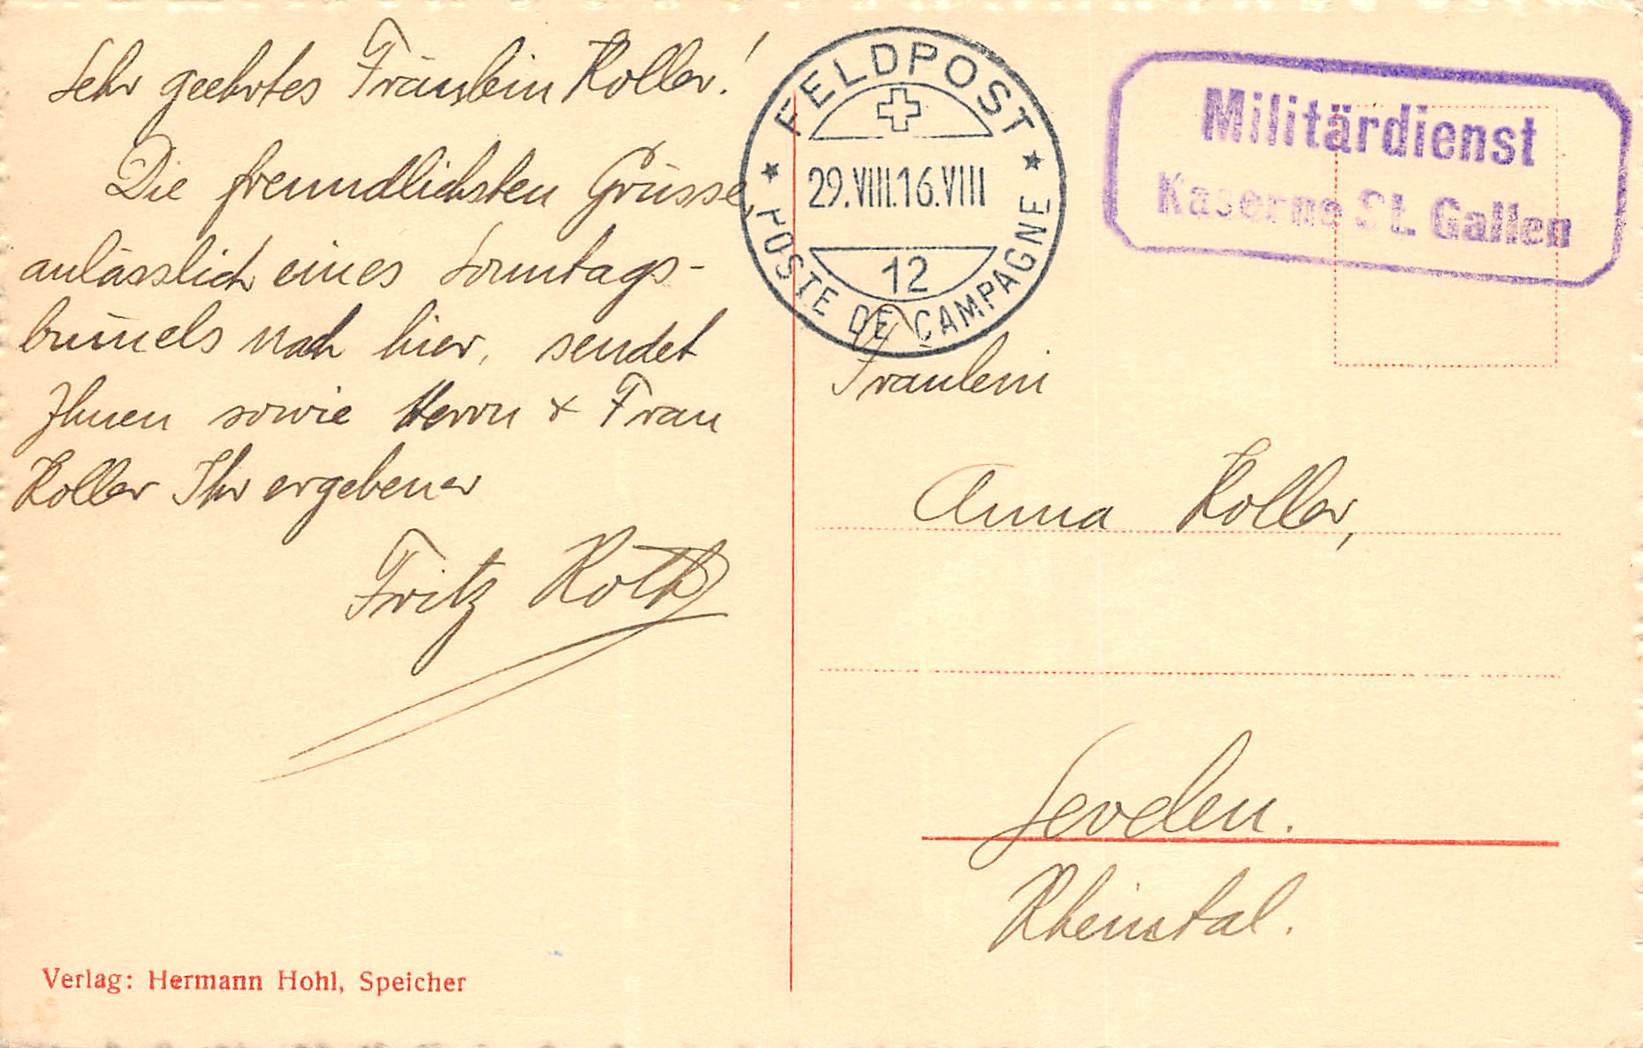 Sehr geehrtes Fräulein Koller!
Die freundlichsten Grüsse,
anlässlich eines Sonntags-
bum̄els nach hier, sendet
Ihnen sowie Herrn & Frau
Koller Ihr ergebener
Fritz Roth
Verlag: Hermann Hohl, Speicher
FELDPOST
29.VIII.16.VIII
12
POSTE DE CAMPAGNE
Militärdienst
Kaserne St. Gallen
Fräulein
Anna Koller,
Sevelen.
Rheintal.